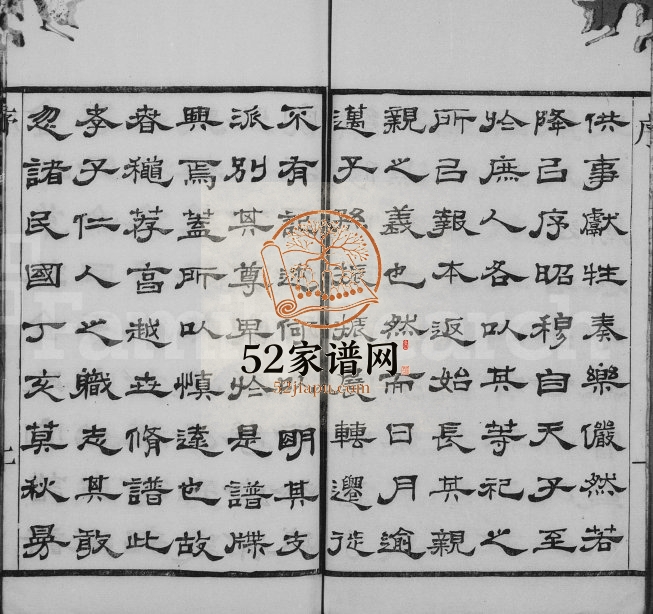 序
供事獻牲奏樂儼然若
降㠯序昭穆自天子至
於庶人各以其等祀之
所㠯報本返始長其親
親之義也然而日月逾
邁子孫轉遷徙
不有記述何明其支
派別其尊卑於是譜牒
興焉蓋所以慎遠也故
春穐荐亯越世脩譜此
孝子仁人之職志其敢
忽諸民國丁亥莫秋
序
52家谱网
52jiapu.com